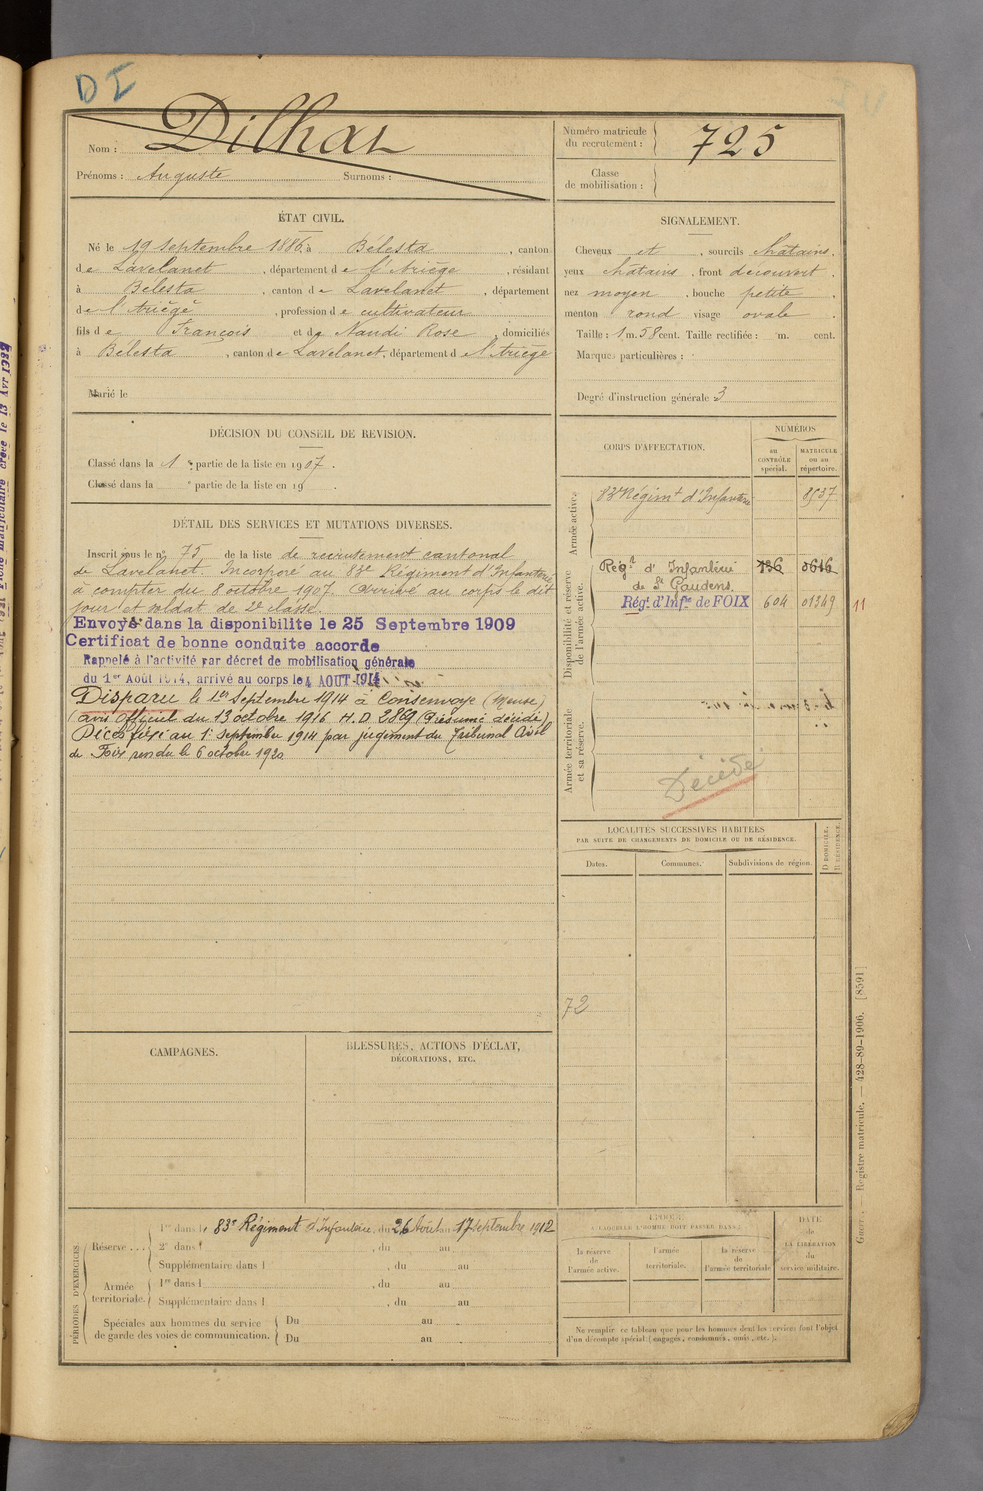 DI
Nom : Dilhat
Prénoms : Auguste Surnoms :
Numéro matricule du recrutement : 725
Classe de mobilisation :
ÉTAT CIVIL.
Né le 19 septembre 1886 à Bélesta, canton
de Lavelanet, département de l'Ariège, résidant
à Bélesta, canton de Lavelanet, département
de l'Ariège, profession de cultivateur
fils de François et de Naudi Rose, domiciliés
à Bélesta, canton de Lavelanet, département de l'Ariège
Marié le
SIGNALEMENT.
Cheveux et, sourcils châtains,
yeux châtains, front découvert,
nez moyen, bouche petite,
menton rond visage ovale.
Taille : 1 m. 58 cent. Taille rectifiée : m. cent.
Marques particulières :
Degré d'instruction générale 3
DÉCISION DU CONSEIL DE REVISION.
Classé dans la 1re partie de la liste en 1907.
Classé dans la e partie de la liste en 19 .
DÉTAIL DES SERVICES ET MUTATIONS DIVERSES.
Inscrit sous le n° 75 de la liste de recrutement cantonal
de Lavelanet. Incorporé au 83e Régiment d'Infanterie
à compter du 8 octobre 1907. Arrivé au corps le dit
jour et soldat de 2e classe.
Envoyé dans la disponibilite le 25 Septembre 1909
Certificat de bonne conduite accorde
Rappelé à l'activité par décret de mobilisation générale
du 1er Août 1914, arrivé au corps le 4 AOUT 1914
Disparu le 1er Septembre 1914 à Consenvoye (Meuse)
(avis officiel du 13 octobre 1916 H.D. 2869 Présumé décédé)
Décès fixé au 1er Septembre 1914 par jugement du Tribunal Civil
de Foix rendu le 6 octobre 1920
CORPS D'AFFECTATION.
NUMÉROS
au CONTRÔLE spécial.
MATRICULE ou au répertoire.
Armée active.
83e Régimt d'Infanterie 8537
Disponibilité et réserve de l'armée active.
Régt d'Infanterie 736 0616
de St Gaudens.
Régt d'Infie de FOIX 604 01349
11
Armée territoriale et sa réserve.
Décédé
LOCALITÉS SUCCESSIVES HABITÉES
PAR SUITE DE CHANGEMENTS DE DOMICILE OU DE RÉSIDENCE.
Dates. Communes. Subdivisions de région. D DOMICILE, R RÉSIDENCE.
72
CAMPAGNES.
BLESSURES, ACTIONS D'ÉCLAT,
DÉCORATIONS, ETC.
PÉRIODES D'EXERCICES
Réserve... 1re dans le 83e Régiment d'Infanterie, du 26 Août au 17 Septembre 1912
2e dans l , du au
Supplémentaire dans l , du au
Armée territoriale. 1re dans l , du au
Supplémentaire dans l , du au
Spéciales aux hommes du service de garde des voies de communication. Du au .
Du au .
ÉPOQUE
À LAQUELLE L'HOMME DOIT PASSER DANS :
la réserve de l'armée active.
l'armée territoriale.
la réserve de l'armée territoriale
DATE de LA LIBÉRATION du service militaire.
Ne remplir ce tableau que pour les hommes dont les services font l'objet
d'un décompte spécial (engagés, condamnés, omis, etc.).
Registre matricule. — 428-89-1906. [8591]